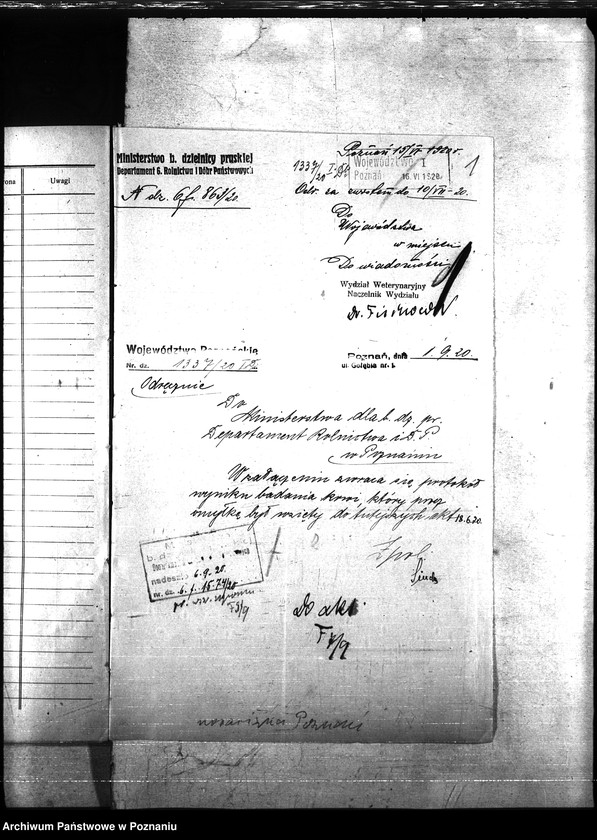 rona
Uwagi
Ministerstwo b. dzielnicy pruskiej
Departament 6. Rolnictwa i Dóbr Państwowych
N dz. 6 f. 863/20
Poznań 15/VI 1920 r.
1337/20 I
Województwo I
Poznań 16. VI 1920
1
Odr. za zwrotem do 10/VII - 20.
Do
Województwa
w miejscu
Do wiadomości
Wydział Weterynaryjny
Naczelnik Wydziału
Dr.
Województwo Poznańskie
Nr. dz. 1337/20 I
Poznań, dnia 1. 9. 20.
ul. Gołębia nr. 1.
Odręcznie
Do
Ministerstwa dla b. dz. pr.
Departament Rolnictwa i D. P
w Poznaniu
W załączeniu zwraca się protokół
wyniku badania krwi, który przez
omyłkę był wzięty do tutejszych akt 18.6.20.
nadesz. 6. 9. 20.
nr. dz. 6. f. 1574/20
F 8/9
Do akt.
F 8/9
Poznań
Archiwum Państwowe w Poznaniu